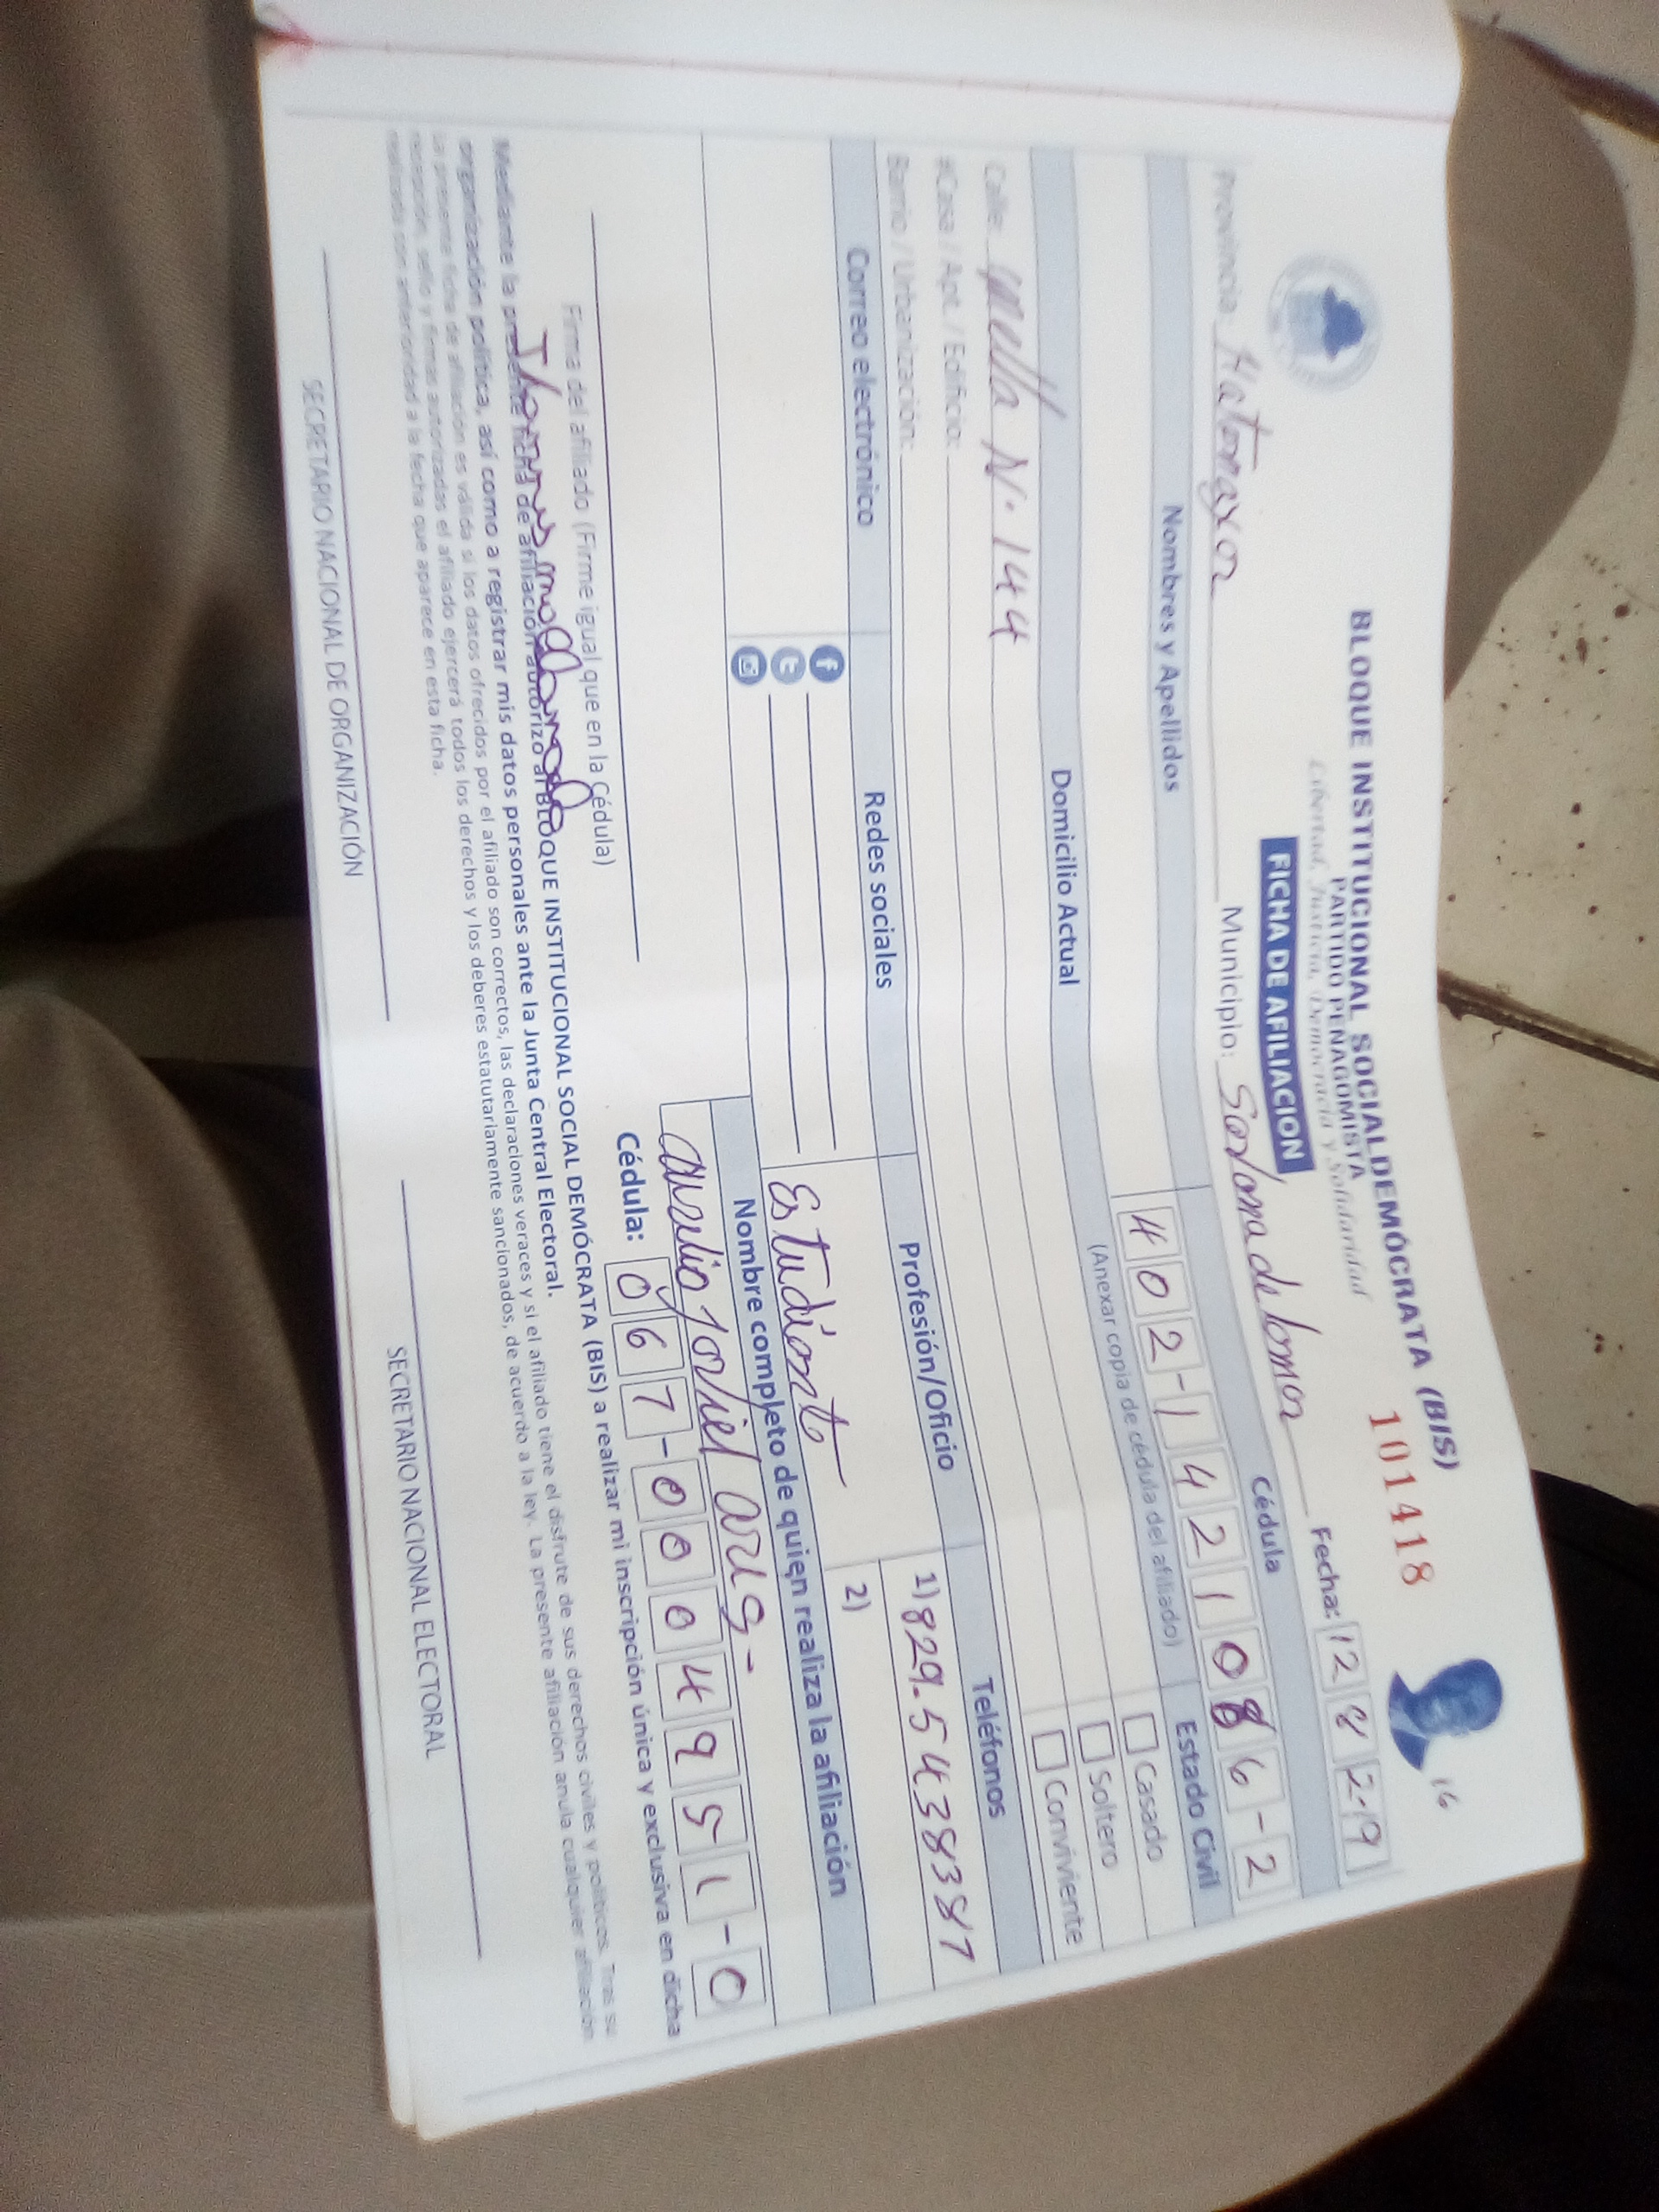 BLOQUE INSTITUCIONAL SOCIALDEMÓCRATA (BIS)
PARTIDO PEÑAGOMISTA
Libertad, Justicia, Democracia y Solidaridad
101418
16
FICHA DE AFILIACION
Fecha: 12 8 2-19
Provincia Hatomayor Municipio: Sabana de la mar
Nombres y Apellidos
Cédula
402-1421086-2
(Anexar copia de cédula del afiliado)
Estado Civil
Casado
Soltero
Conviviente
Domicilio Actual
Calle: N. 144
#Casa / Apt. / Edificio:
Barrio / Urbanización:
Teléfonos
1) 829-5438387
2)
Correo electrónico
Redes sociales
Profesión/Oficio
Estudiante
Nombre completo de quien realiza la afiliación
Cédula: 067-0004951-0
Firma del afiliado (Firme igual que en la Cédula)
Mediante la presente ficha de afiliación autorizo al BLOQUE INSTITUCIONAL SOCIAL DEMÓCRATA (BIS) a realizar mi inscripción única y exclusiva en dicha
organización política, así como a registrar mis datos personales ante la Junta Central Electoral.
La presente ficha de afiliación es válida si los datos ofrecidos por el afiliado son correctos, las declaraciones veraces y si el afiliado tiene el disfrute de sus derechos civiles y políticos. Tras su
recepción, sello y firmas autorizadas el afiliado ejercerá todos los derechos y los deberes estatutariamente sancionados, de acuerdo a la ley. La presente afiliación anula cualquier afiliación
realizada con anterioridad a la fecha que aparece en esta ficha.
SECRETARIO NACIONAL DE ORGANIZACIÓN
SECRETARIO NACIONAL ELECTORAL